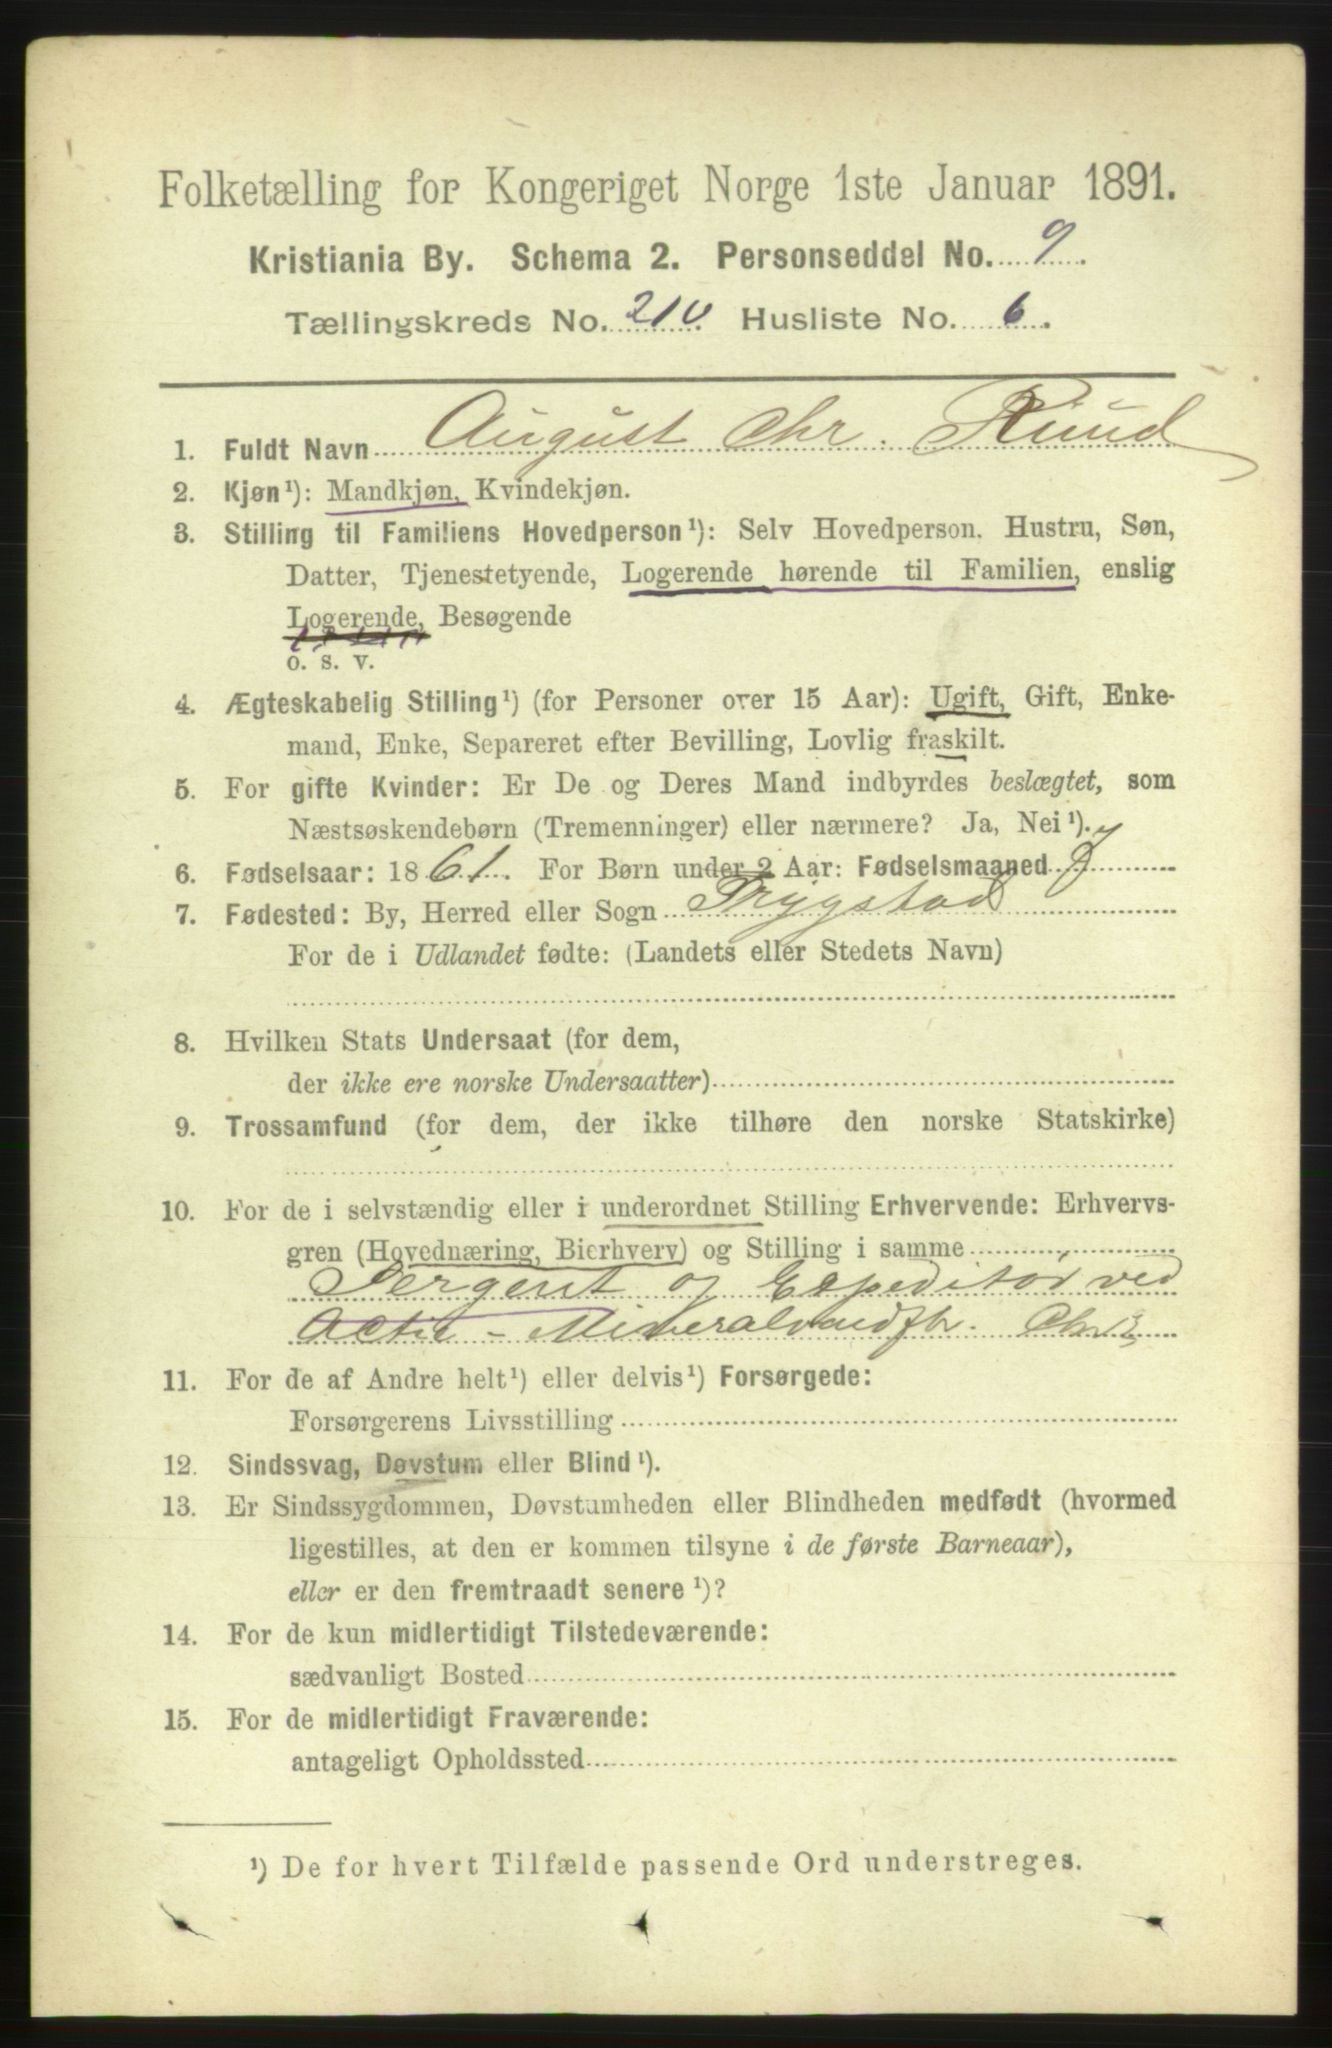 Folketælling for Kongeriget Norge 1ste Januar 1891.
Kristiania By. Schema 2. Personseddel No. 9.
Tællingskreds No. 210. Husliste No. 6.
1. Fuldt Navn August Chr. Ruud
2. Kjøn¹): Mandkjøn, Kvindekjøn.
3. Stilling til Familiens Hovedperson¹): Selv Hovedperson. Hustru, Søn,
Datter, Tjenestetyende, Logerende hørende til Familien, enslig
Logerende, Besøgende
o. s. v.
4. Ægteskabelig Stilling¹) (for Personer over 15 Aar): Ugift, Gift, Enke-
mand, Enke, Separeret efter Bevilling, Lovlig fraskilt.
5. For gifte Kvinder: Er De og Deres Mand indbyrdes beslægtet, som
Næstsøskendebørn (Tremenninger) eller nærmere? Ja, Nei¹).
6. Fødselsaar: 1861. For Børn under 2 Aar: Fødselsmaaned
7. Fødested: By, Herred eller Sogn Trygstad
For de i Udlandet fødte: (Landets eller Stedets Navn)
8. Hvilken Stats Undersaat (for dem,
der ikke ere norske Undersaatter)
9. Trossamfund (for dem, der ikke tilhøre den norske Statskirke)
10. For de i selvstændig eller i underordnet Stilling Erhvervende: Erhvervs-
gren (Hovednæring, Bierhverv) og Stilling i samme
Sergent og Expeditør ved
Actie-Mineralvandfbr. Chr
11. For de af Andre helt¹) eller delvis¹) Forsørgede:
Forsørgerens Livsstilling
12. Sindssvag, Døvstum eller Blind¹).
13. Er Sindssygdommen, Døvstumheden eller Blindheden medfødt (hvormed
ligestilles, at den er kommen tilsyne i de første Barneaar),
eller er den fremtraadt senere¹)?
14. For de kun midlertidigt Tilstedeværende:
sædvanligt Bosted
15. For de midlertidigt Fraværende:
antageligt Opholdssted
¹) De for hvert Tilfælde passende Ord understreges.